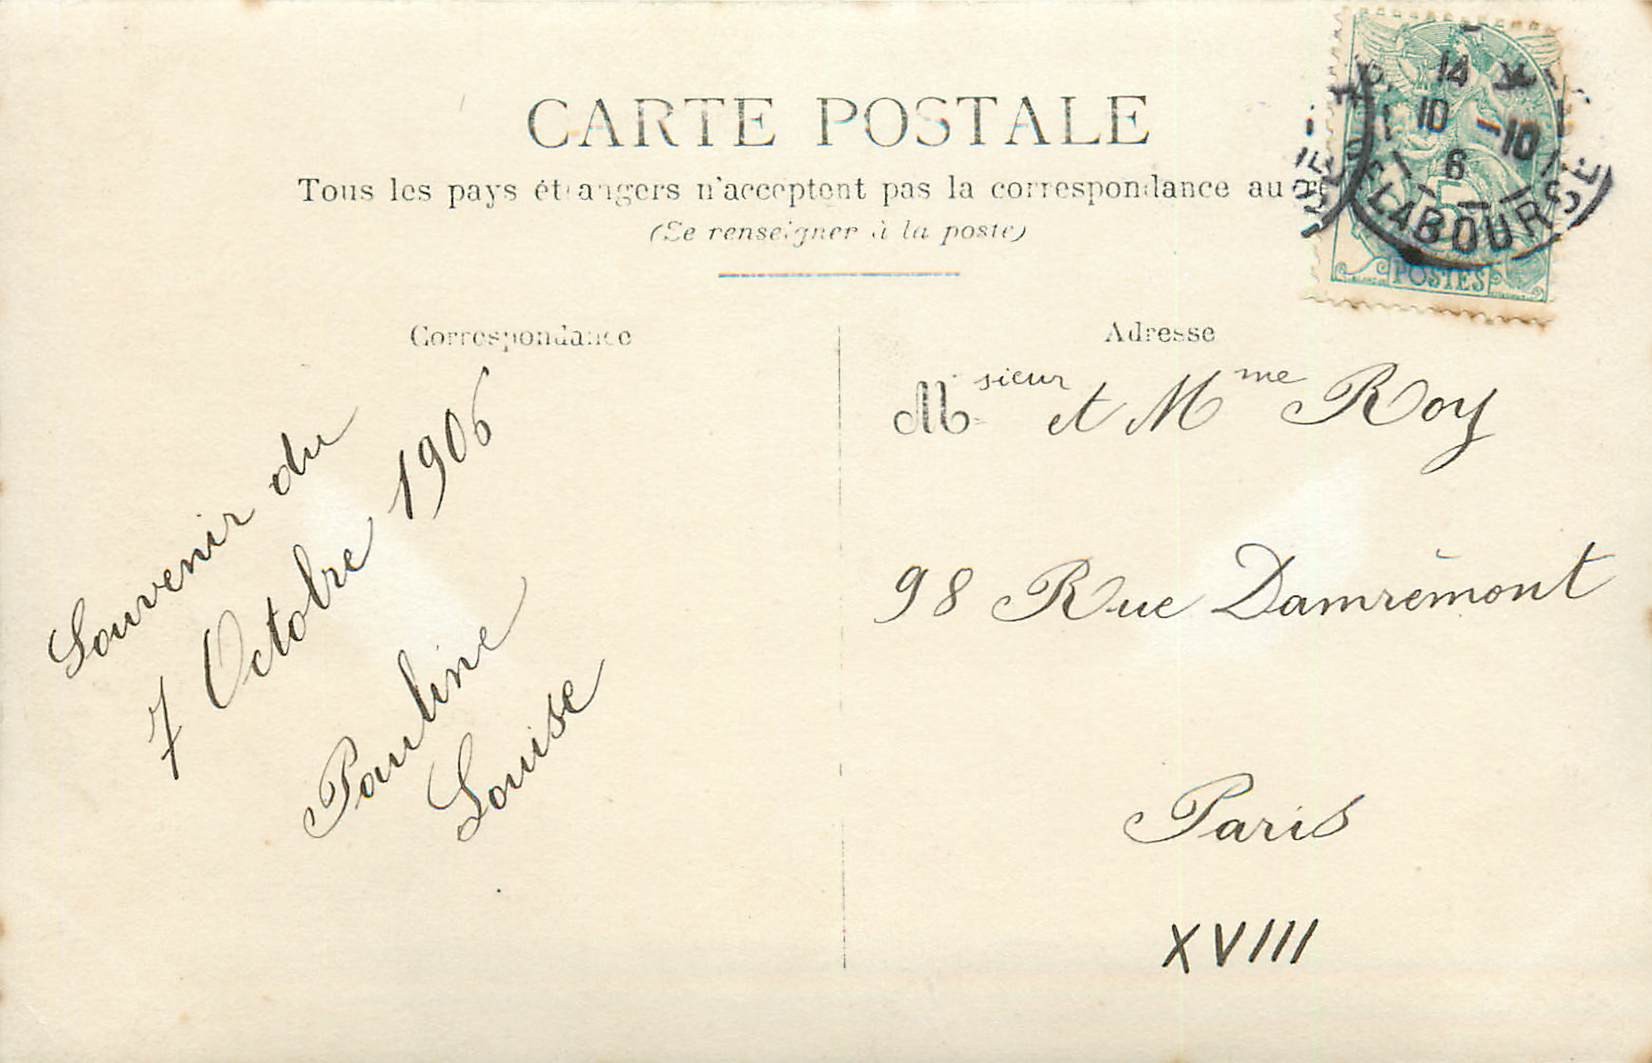 CARTE POSTALE
Tous les pays étrangers n'acceptent pas la correspondance au
(Se renseigner à la poste)
Correspondance
Adresse
Souvenir du
7 Octobre 1906
Pauline
Louise
Msieur et Mme Roy
98 Rue Damrémont
Paris
XVIII
14
10 -10
6
DE LA BOURSE
POSTES